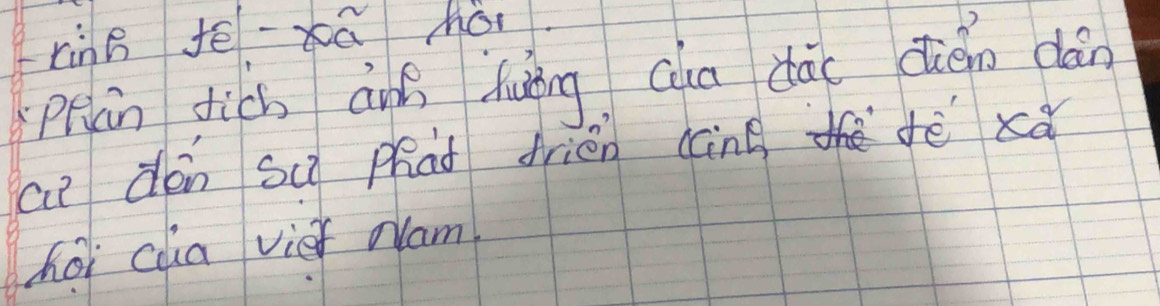 - kinh tế - xã hội
Phân tích ảnh hưởng của đặc điểm dân
cư đến sự phát triển kinh thế tế xã
hội của việt Nam.